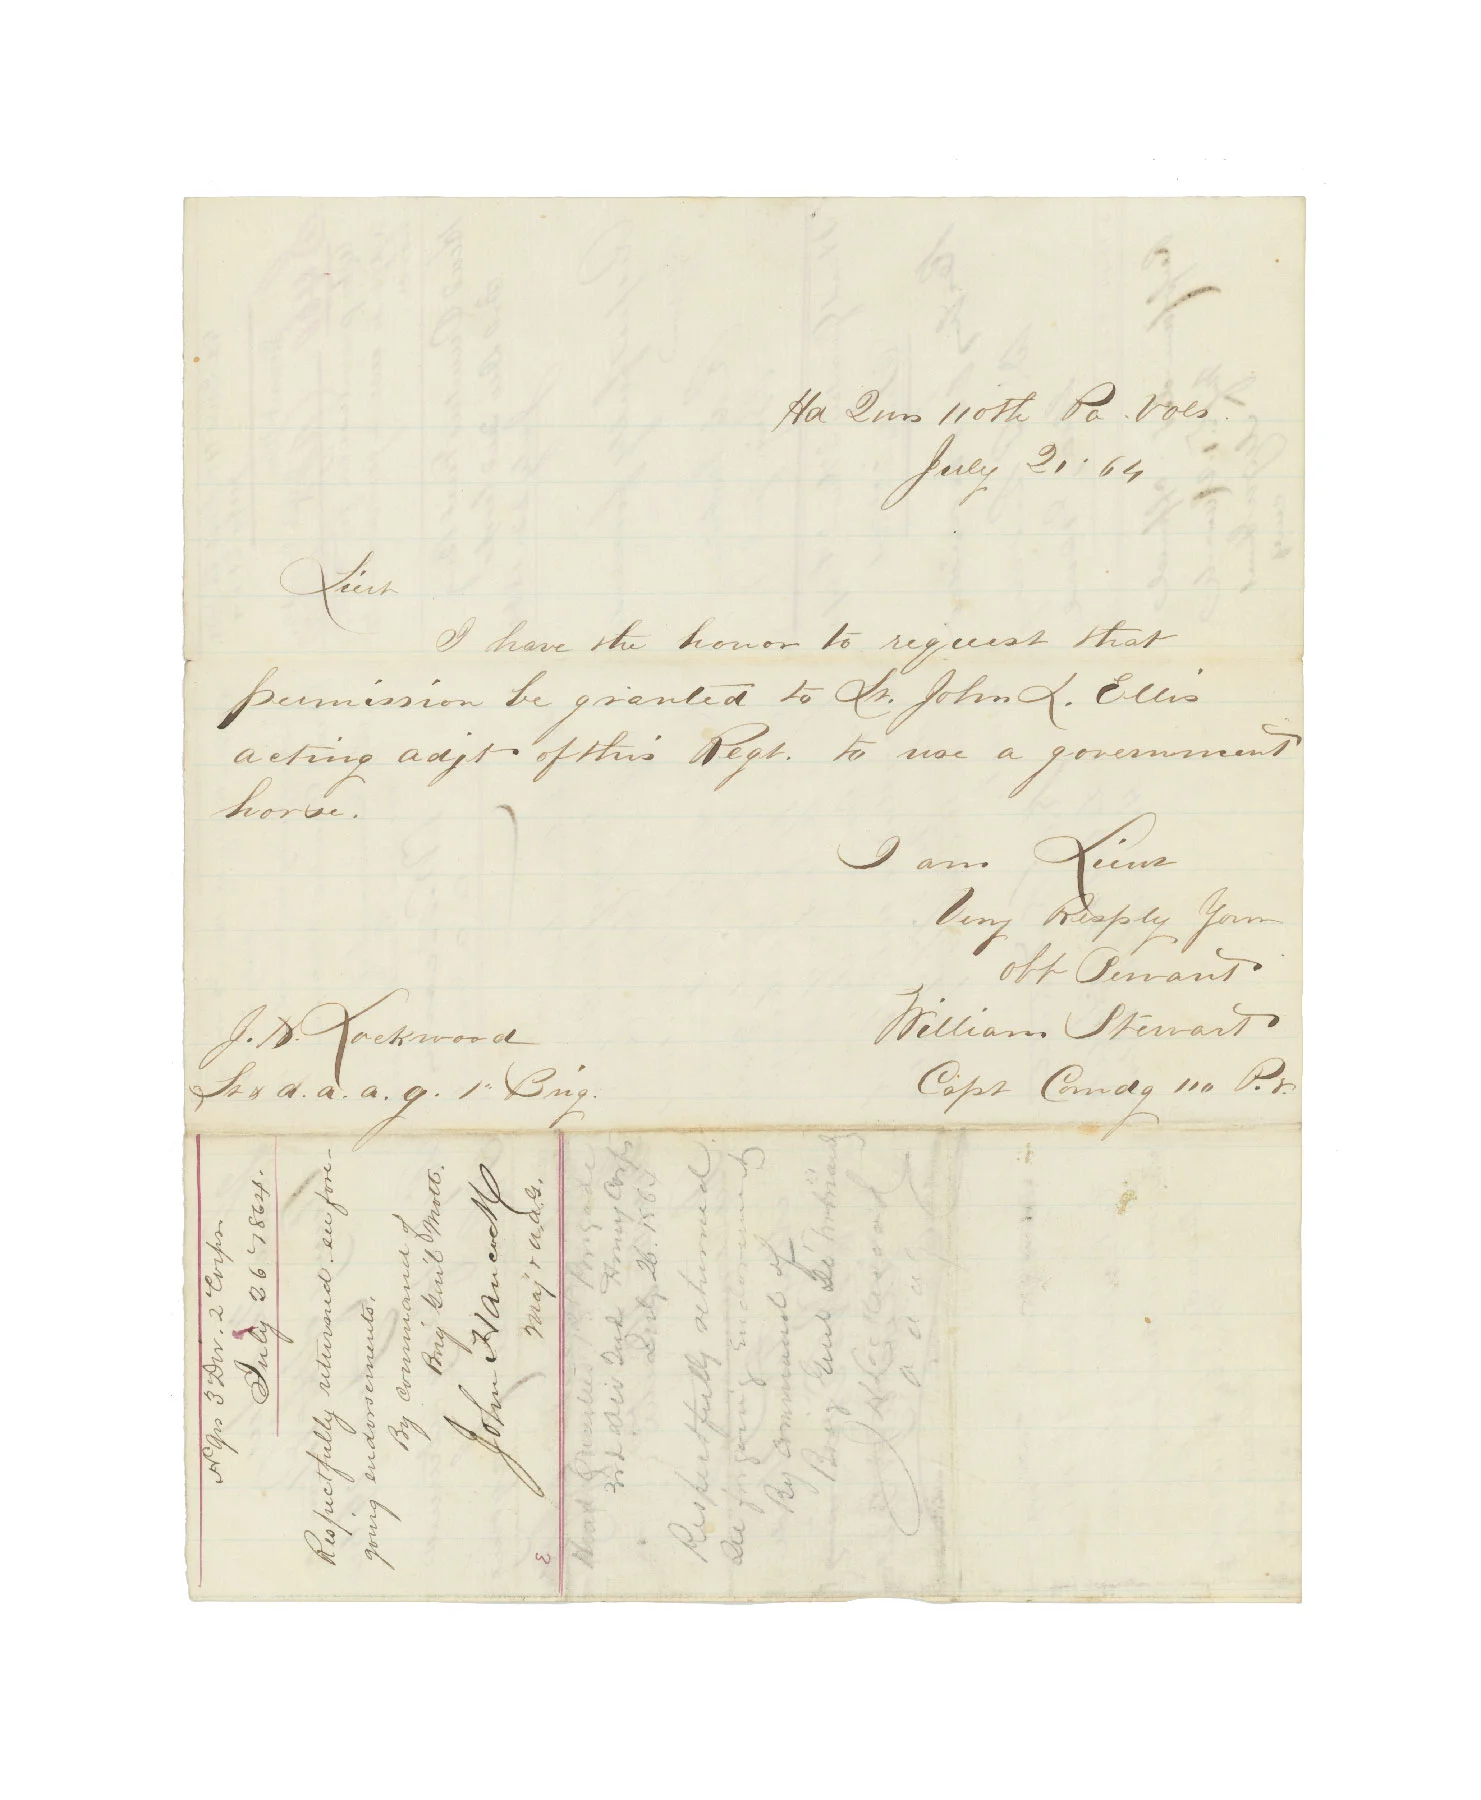 Hd Qurs 110th Pa. Vols.
July 21. 64
Lieut
I have the honor to request that
permission be granted to Lt. John L. Ellis
acting adjt of this Regt. to use a government
horse.
I am Lieut
Very Resply Your
obt Servant
William Stewart
Capt Comdg 110 P.V.
J. H. Lockwood
Lt & a. a. a. g. 1" Brig.
Hd Qrs 3 Div. 2 Corps
July 26" 1864.
Respectfully returned. see fore-
going endorsements.
By Command of
Brig Genl Mott.
John Hancock
Maj & a.a.G.
Head Quarters Brigade
3rd Div 2nd Army Corps
July 26. 1864
Respectfully returned.
See forgoing endorsements
By Command of
Brig Genl
A A A